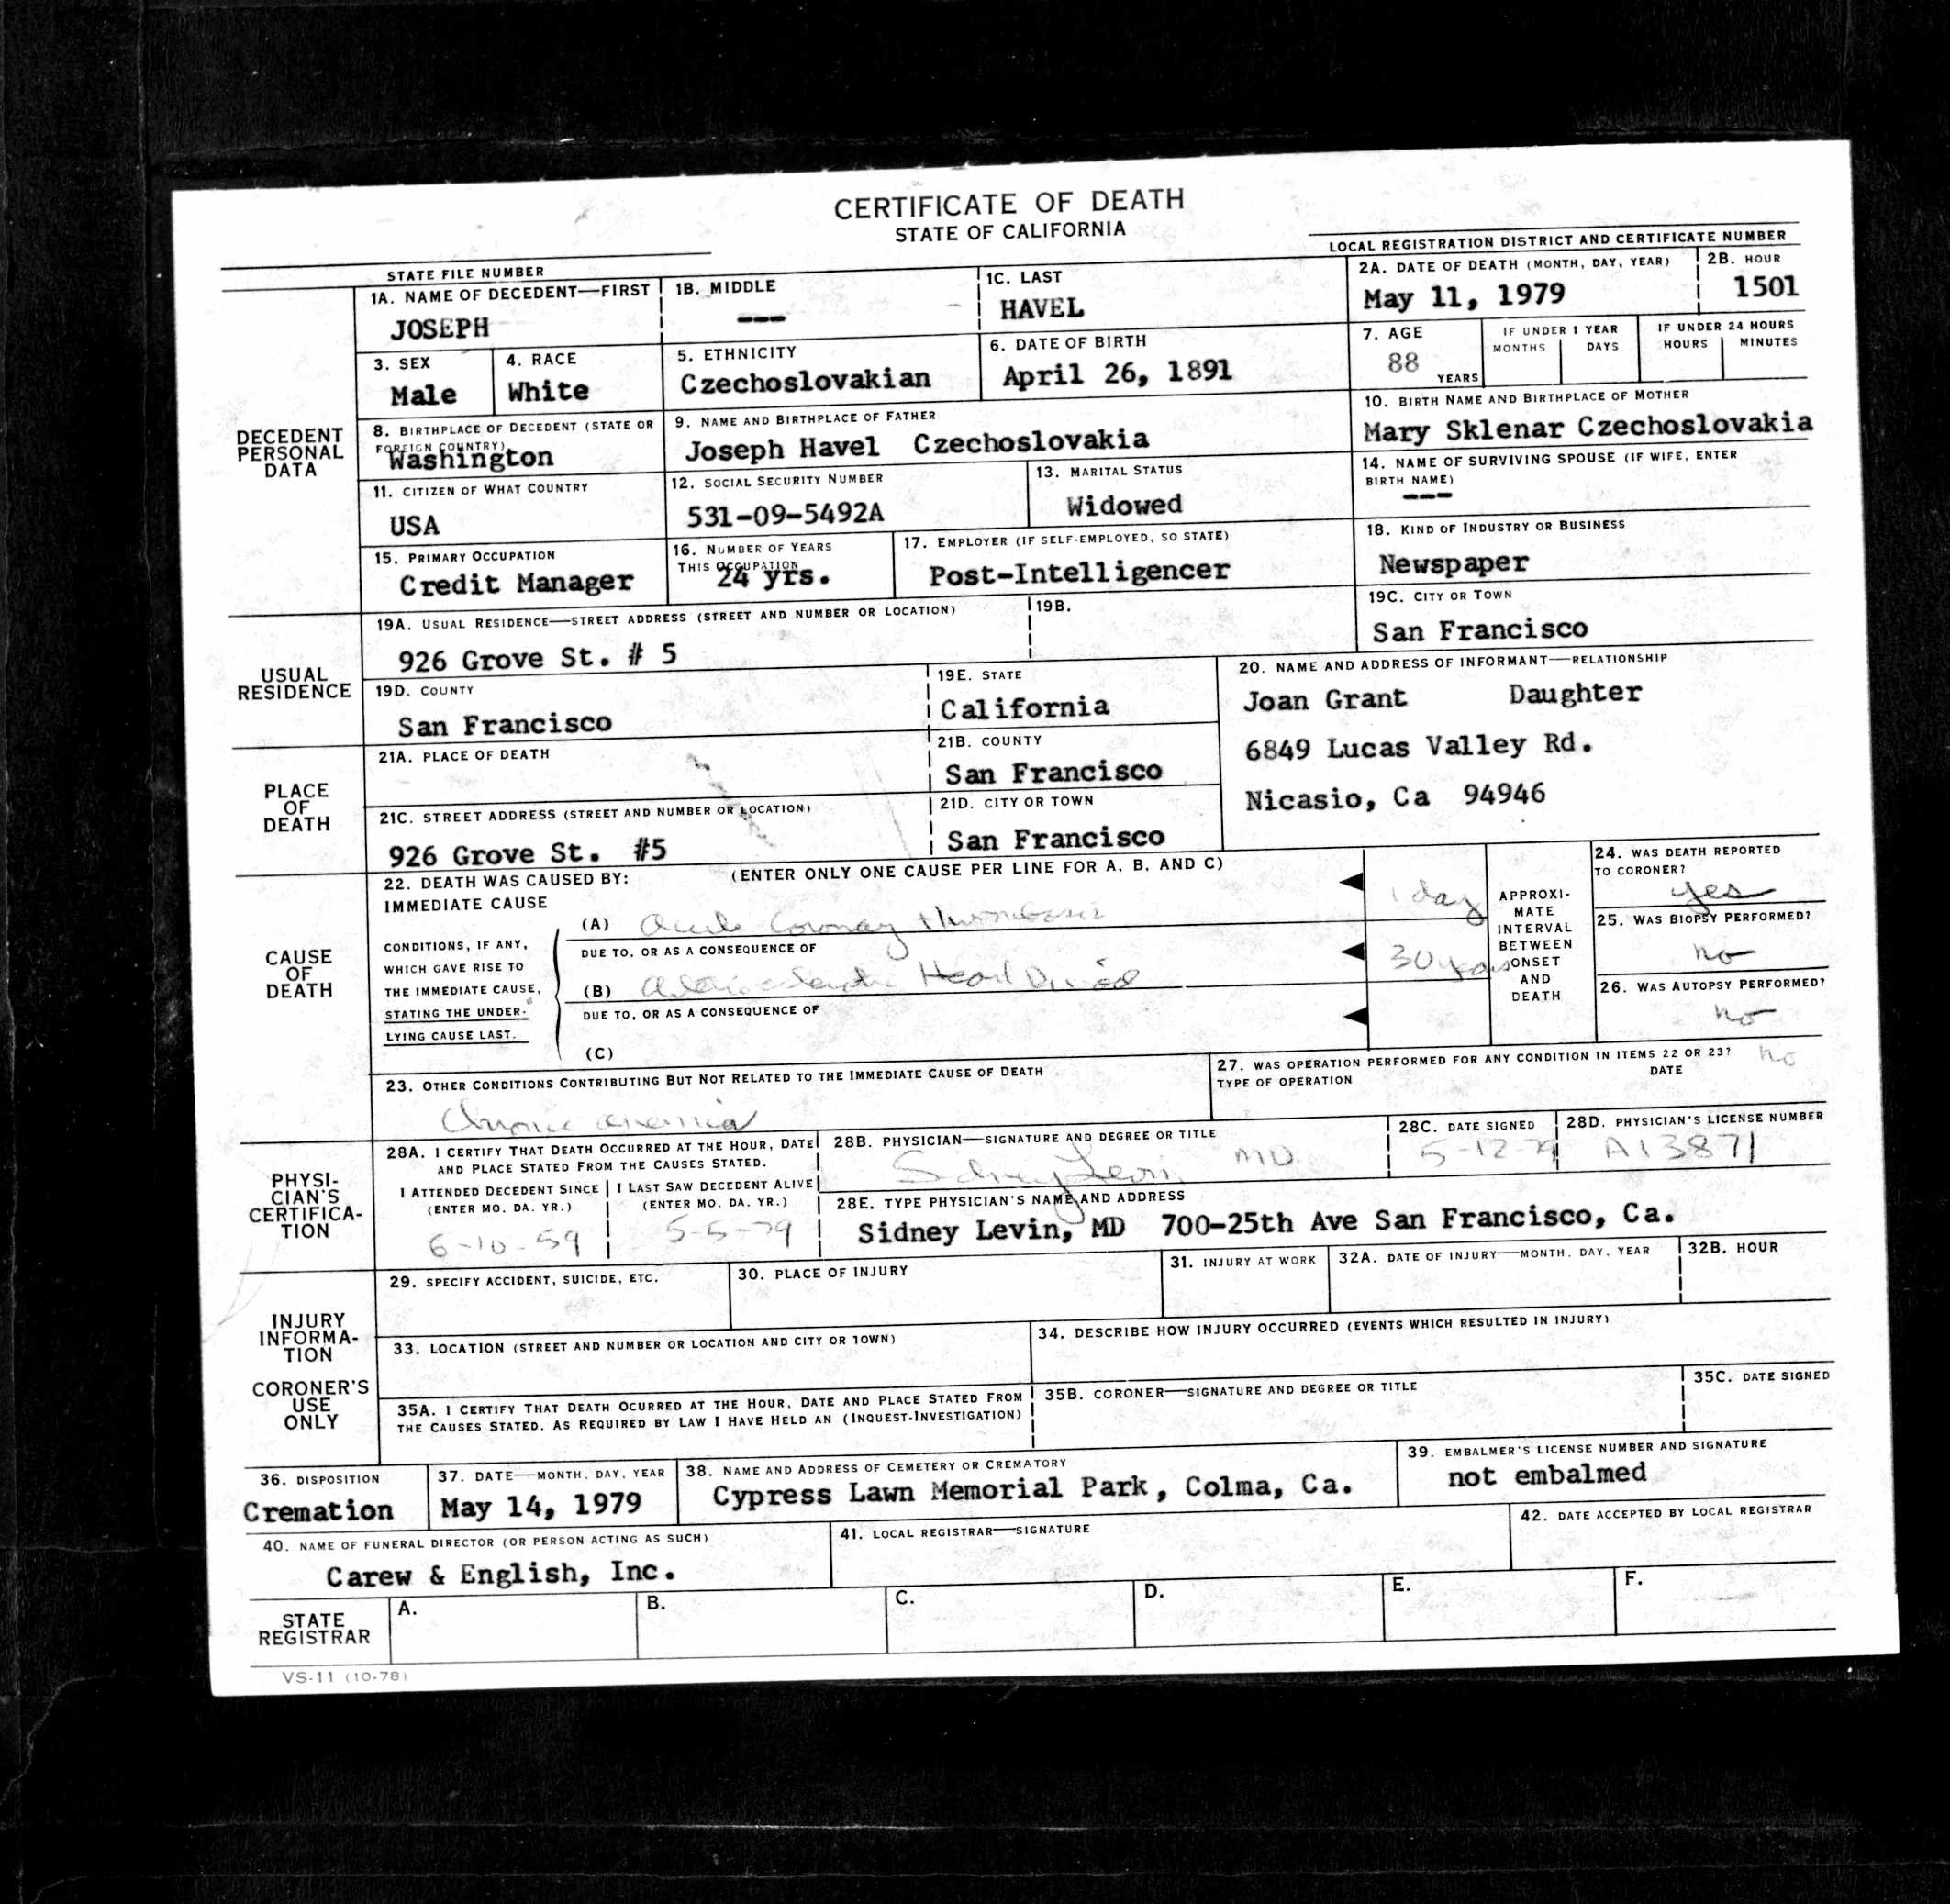 CERTIFICATE OF DEATH
STATE OF CALIFORNIA
STATE FILE NUMBER
LOCAL REGISTRATION DISTRICT AND CERTIFICATE NUMBER
DECEDENT PERSONAL DATA
1A. NAME OF DECEDENT—FIRST
JOSEPH
1B. MIDDLE
---
1C. LAST
HAVEL
2A. DATE OF DEATH (MONTH, DAY, YEAR)
May 11, 1979
2B. HOUR
1501
3. SEX
Male
4. RACE
White
5. ETHNICITY
Czechoslovakian
6. DATE OF BIRTH
April 26, 1891
7. AGE
88
YEARS
IF UNDER 1 YEAR
MONTHS DAYS
IF UNDER 24 HOURS
HOURS MINUTES
8. BIRTHPLACE OF DECEDENT (STATE OR
FOREIGN COUNTRY)
Washington
9. NAME AND BIRTHPLACE OF FATHER
Joseph Havel Czechoslovakia
10. BIRTH NAME AND BIRTHPLACE OF MOTHER
Mary Sklenar Czechoslovakia
11. CITIZEN OF WHAT COUNTRY
USA
12. SOCIAL SECURITY NUMBER
531-09-5492A
13. MARITAL STATUS
Widowed
14. NAME OF SURVIVING SPOUSE (IF WIFE, ENTER
BIRTH NAME)
---
15. PRIMARY OCCUPATION
Credit Manager
16. NUMBER OF YEARS
THIS OCCUPATION
24 yrs.
17. EMPLOYER (IF SELF-EMPLOYED, SO STATE)
Post-Intelligencer
18. KIND OF INDUSTRY OR BUSINESS
Newspaper
USUAL RESIDENCE
19A. USUAL RESIDENCE—STREET ADDRESS (STREET AND NUMBER OR LOCATION)
926 Grove St. # 5
19B.
19C. CITY OR TOWN
San Francisco
19D. COUNTY
San Francisco
19E. STATE
California
20. NAME AND ADDRESS OF INFORMANT—RELATIONSHIP
Joan Grant Daughter
6849 Lucas Valley Rd.
Nicasio, Ca 94946
PLACE OF DEATH
21A. PLACE OF DEATH
21B. COUNTY
San Francisco
21C. STREET ADDRESS (STREET AND NUMBER OR LOCATION)
926 Grove St. #5
21D. CITY OR TOWN
San Francisco
CAUSE OF DEATH
22. DEATH WAS CAUSED BY: (ENTER ONLY ONE CAUSE PER LINE FOR A, B, AND C)
IMMEDIATE CAUSE
(A) Acute Coronary thrombosis
1 day
CONDITIONS, IF ANY,
WHICH GAVE RISE TO
THE IMMEDIATE CAUSE,
STATING THE UNDER-
LYING CAUSE LAST.
DUE TO, OR AS A CONSEQUENCE OF
(B) Heart Disease
30 years
DUE TO, OR AS A CONSEQUENCE OF
(C)
APPROXI-
MATE
INTERVAL
BETWEEN
ONSET
AND
DEATH
24. WAS DEATH REPORTED
TO CORONER?
yes
25. WAS BIOPSY PERFORMED?
no
26. WAS AUTOPSY PERFORMED?
no
23. OTHER CONDITIONS CONTRIBUTING BUT NOT RELATED TO THE IMMEDIATE CAUSE OF DEATH
Chronic anemia
27. WAS OPERATION PERFORMED FOR ANY CONDITION IN ITEMS 22 OR 23? no
TYPE OF OPERATION DATE
PHYSI-
CIAN'S
CERTIFICA-
TION
28A. I CERTIFY THAT DEATH OCCURRED AT THE HOUR, DATE
AND PLACE STATED FROM THE CAUSES STATED.
I ATTENDED DECEDENT SINCE
(ENTER MO. DA. YR.)
6-10-59
I LAST SAW DECEDENT ALIVE
(ENTER MO. DA. YR.)
5-5-79
28B. PHYSICIAN—SIGNATURE AND DEGREE OR TITLE
Sidney Levin MD
28C. DATE SIGNED
5-12-79
28D. PHYSICIAN'S LICENSE NUMBER
A13871
28E. TYPE PHYSICIAN'S NAME AND ADDRESS
Sidney Levin, MD 700-25th Ave San Francisco, Ca.
INJURY
INFORMA-
TION
CORONER'S
USE
ONLY
29. SPECIFY ACCIDENT, SUICIDE, ETC.
30. PLACE OF INJURY
31. INJURY AT WORK
32A. DATE OF INJURY—MONTH, DAY, YEAR
32B. HOUR
33. LOCATION (STREET AND NUMBER OR LOCATION AND CITY OR TOWN)
34. DESCRIBE HOW INJURY OCCURRED (EVENTS WHICH RESULTED IN INJURY)
35A. I CERTIFY THAT DEATH OCURRED AT THE HOUR, DATE AND PLACE STATED FROM
THE CAUSES STATED. AS REQUIRED BY LAW I HAVE HELD AN (INQUEST-INVESTIGATION)
35B. CORONER—SIGNATURE AND DEGREE OR TITLE
35C. DATE SIGNED
36. DISPOSITION
Cremation
37. DATE—MONTH, DAY, YEAR
May 14, 1979
38. NAME AND ADDRESS OF CEMETERY OR CREMATORY
Cypress Lawn Memorial Park, Colma, Ca.
39. EMBALMER'S LICENSE NUMBER AND SIGNATURE
not embalmed
40. NAME OF FUNERAL DIRECTOR (OR PERSON ACTING AS SUCH)
Carew & English, Inc.
41. LOCAL REGISTRAR—SIGNATURE
42. DATE ACCEPTED BY LOCAL REGISTRAR
STATE
REGISTRAR
A.
B.
C.
D.
E.
F.
VS-11 (10-78)